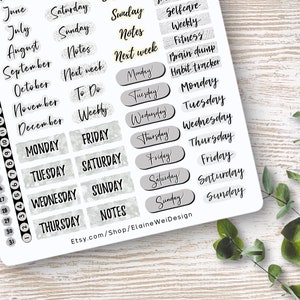 June
July
August
September
October
November
December
Saturday
Sunday
Notes
Next week
To Do
Weekly
Sunday
Notes
Next week
Selfcare
Weekly
Fitness
Brain dump
Habit tracker
Monday
Tuesday
Wednesday
Thursday
Friday
Saturday
Sunday
Monday
Tuesday
Wednesday
Thursday
Friday
Saturday
Sunday
MONDAY
FRIDAY
TUESDAY
SATURDAY
WEDNESDAY
SUNDAY
THURSDAY
NOTES
31
Etsy.com/Shop/ElaineWeiDesign